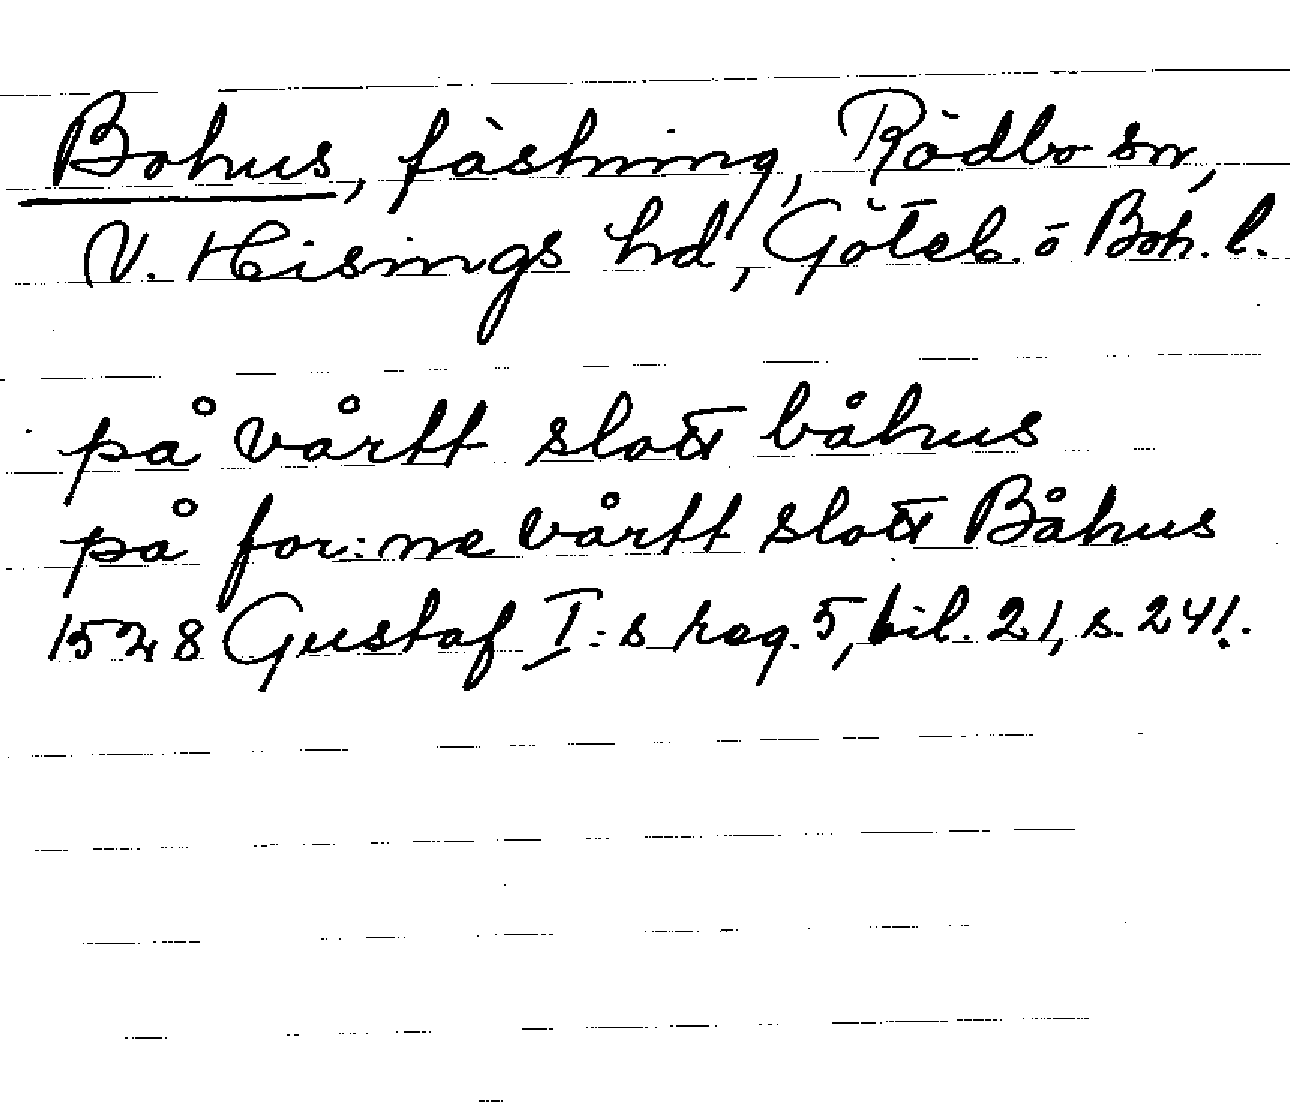 Bohus, fästning, Rödbo sn,
V. Hisings hd, Göteb. o Boh. l.
på vårtt slott båhus
på for:ne vårtt slott Båhus
1528 Gustaf I:s reg. 5, bil. 21, s. 241.